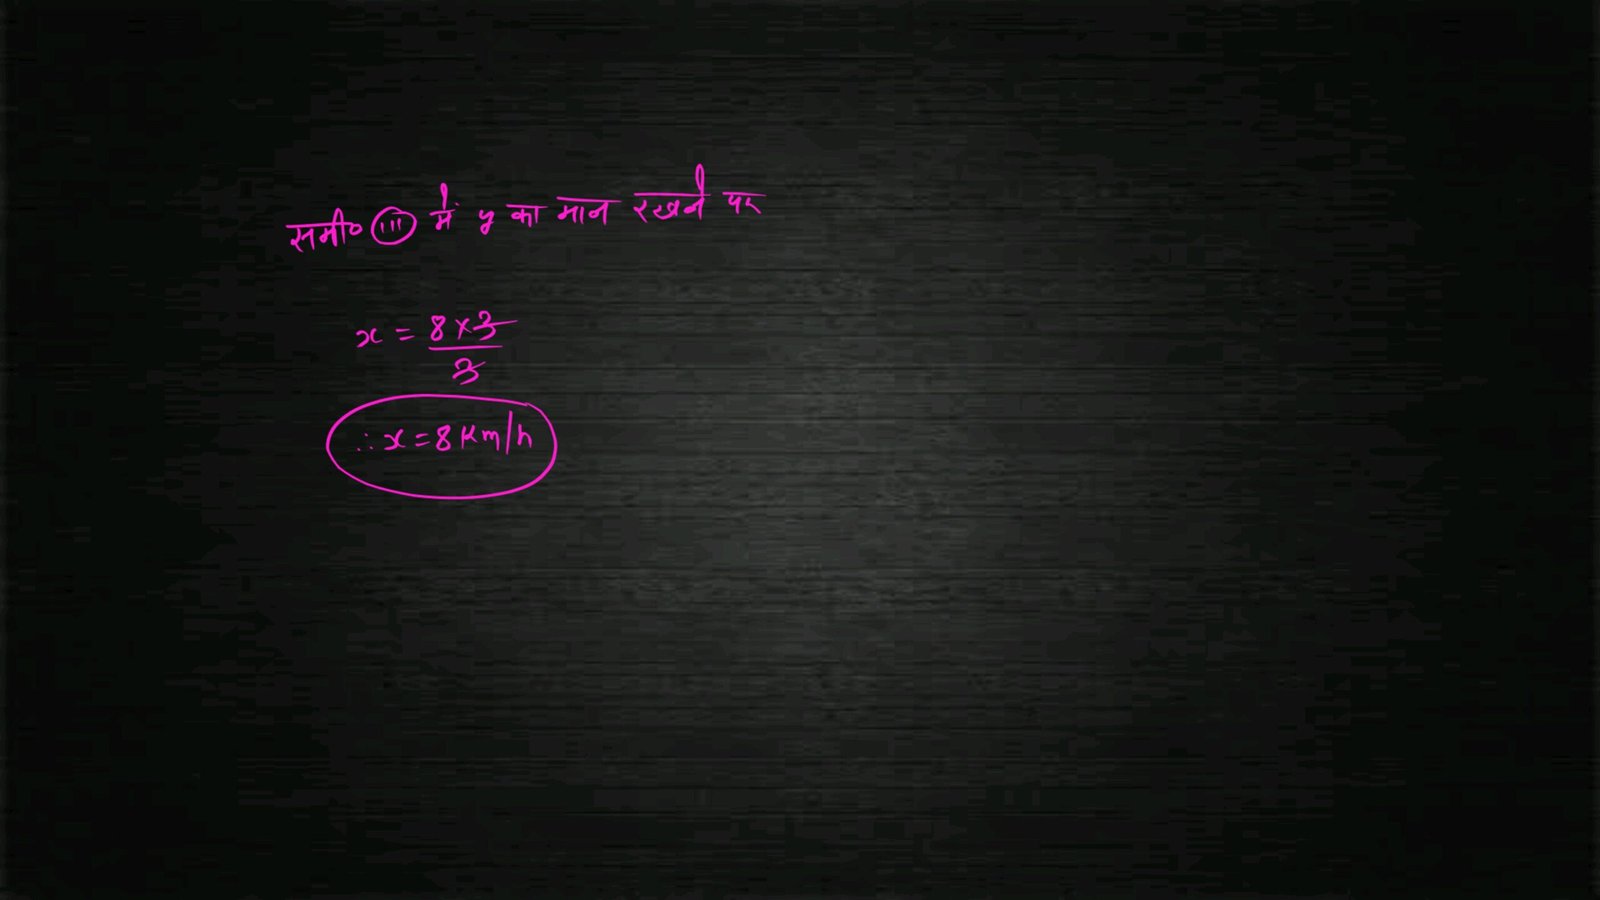 समी० (iii) में y का मान रखने पर
x = 8 × 3 / 3
∴ x = 8 Km/h